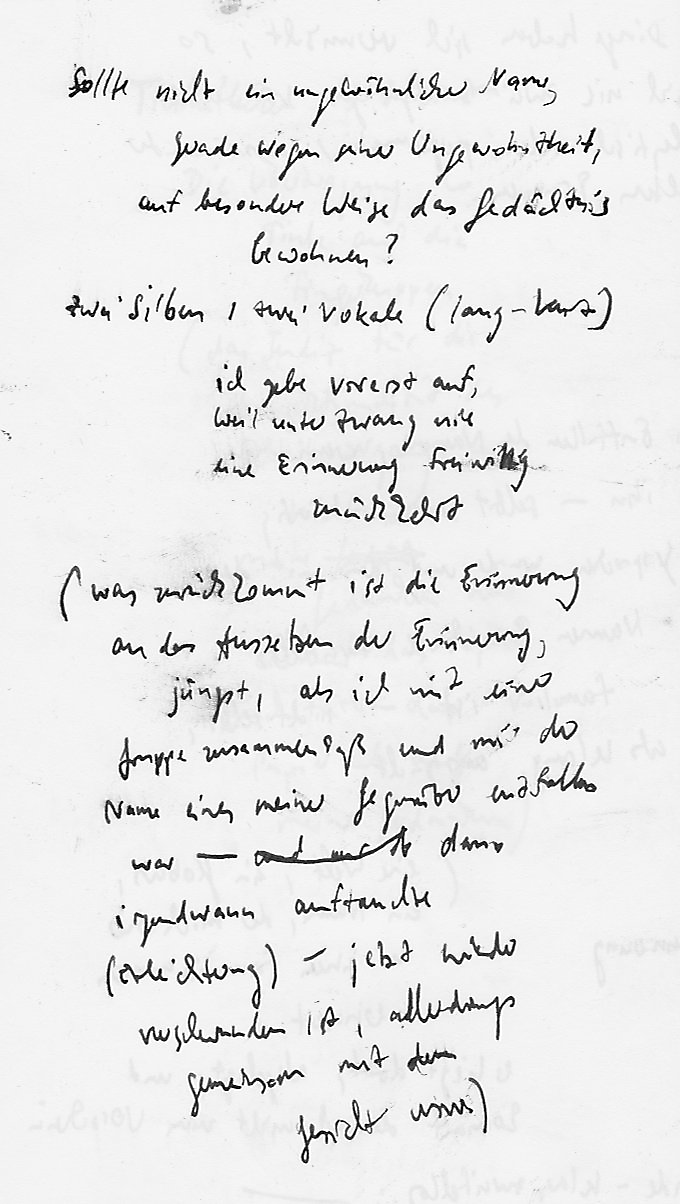 Sollte nicht ein ungewöhnlicher Name,
gerade wegen seiner Ungewohntheit,
auf besondere Weise das Gedächtnis
bewohnen?
zwei Silben, zwei Vokale (lang-kurz)
ich gebe vorerst auf,
weil unter Zwang nie
eine Erinnerung freiwillig
zurückkehrt
(was zurückkommt ist die Erinnerung
an das Aussetzen der Erinnerung,
jüngst, als ich mit einer
Gruppe zusammensaß und mir der
Name eines meiner Gegenüber entfallen
war — dann
irgendwann auftauchte
(Erleichterung) – jetzt wieder
verschwunden ist, allerdings
gemeinsam mit dem
Gesicht)